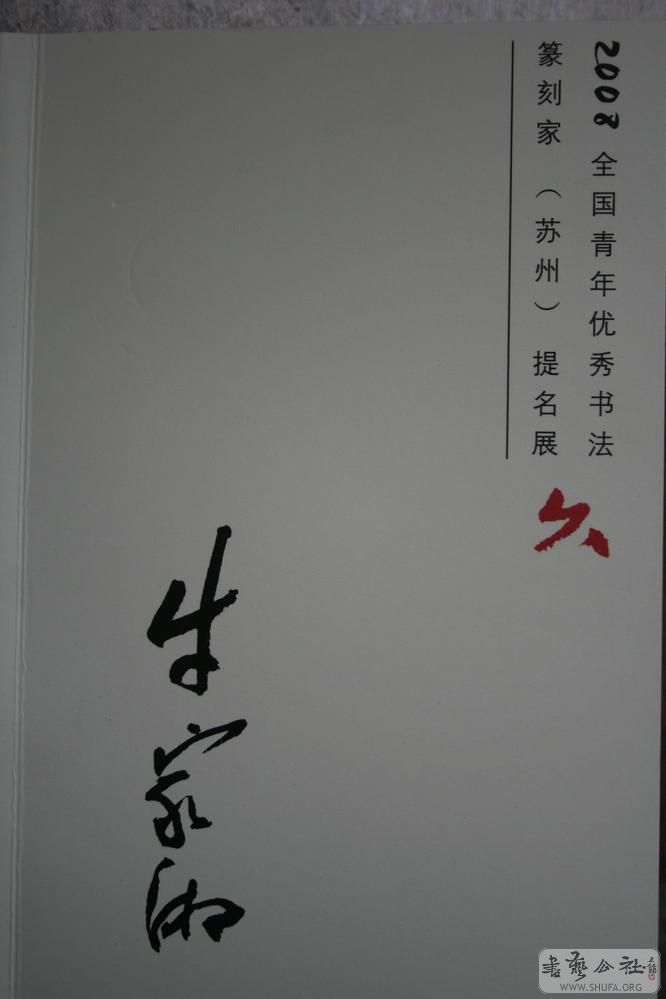 2008 全国青年优秀书法
篆刻家（苏州）提名展
家
書藝公社
WWW.SHUFA.ORG